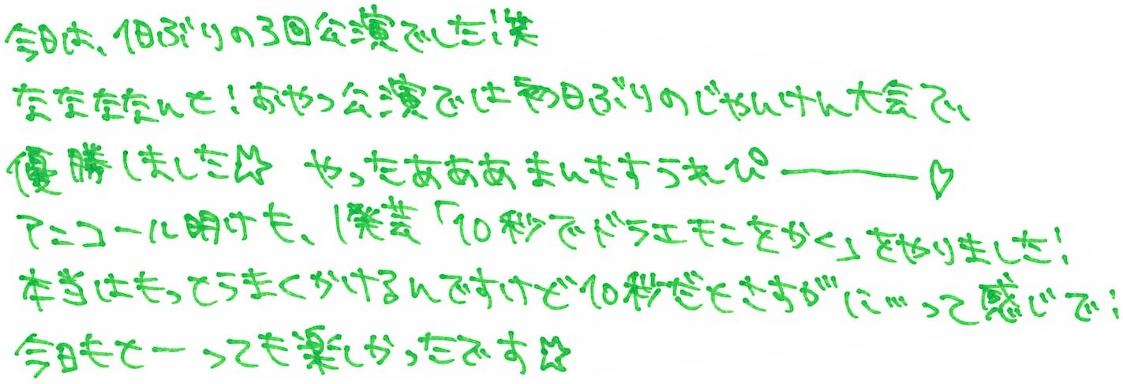 今日は、1日ぶりの3回公演でした!笑
なななななんと!おやつ公演では初日ぶりのじゃんけん大会で、
優勝しました☆ やったあああまんもすうれぴ゜―――♡
アンコール明けも、1発芸「10秒でドラエモンをかく」をやりました!
本当はもっとうまくかけるんですけど10秒だとさすがに…って感じで!
今日もとーっても楽しかったです☆